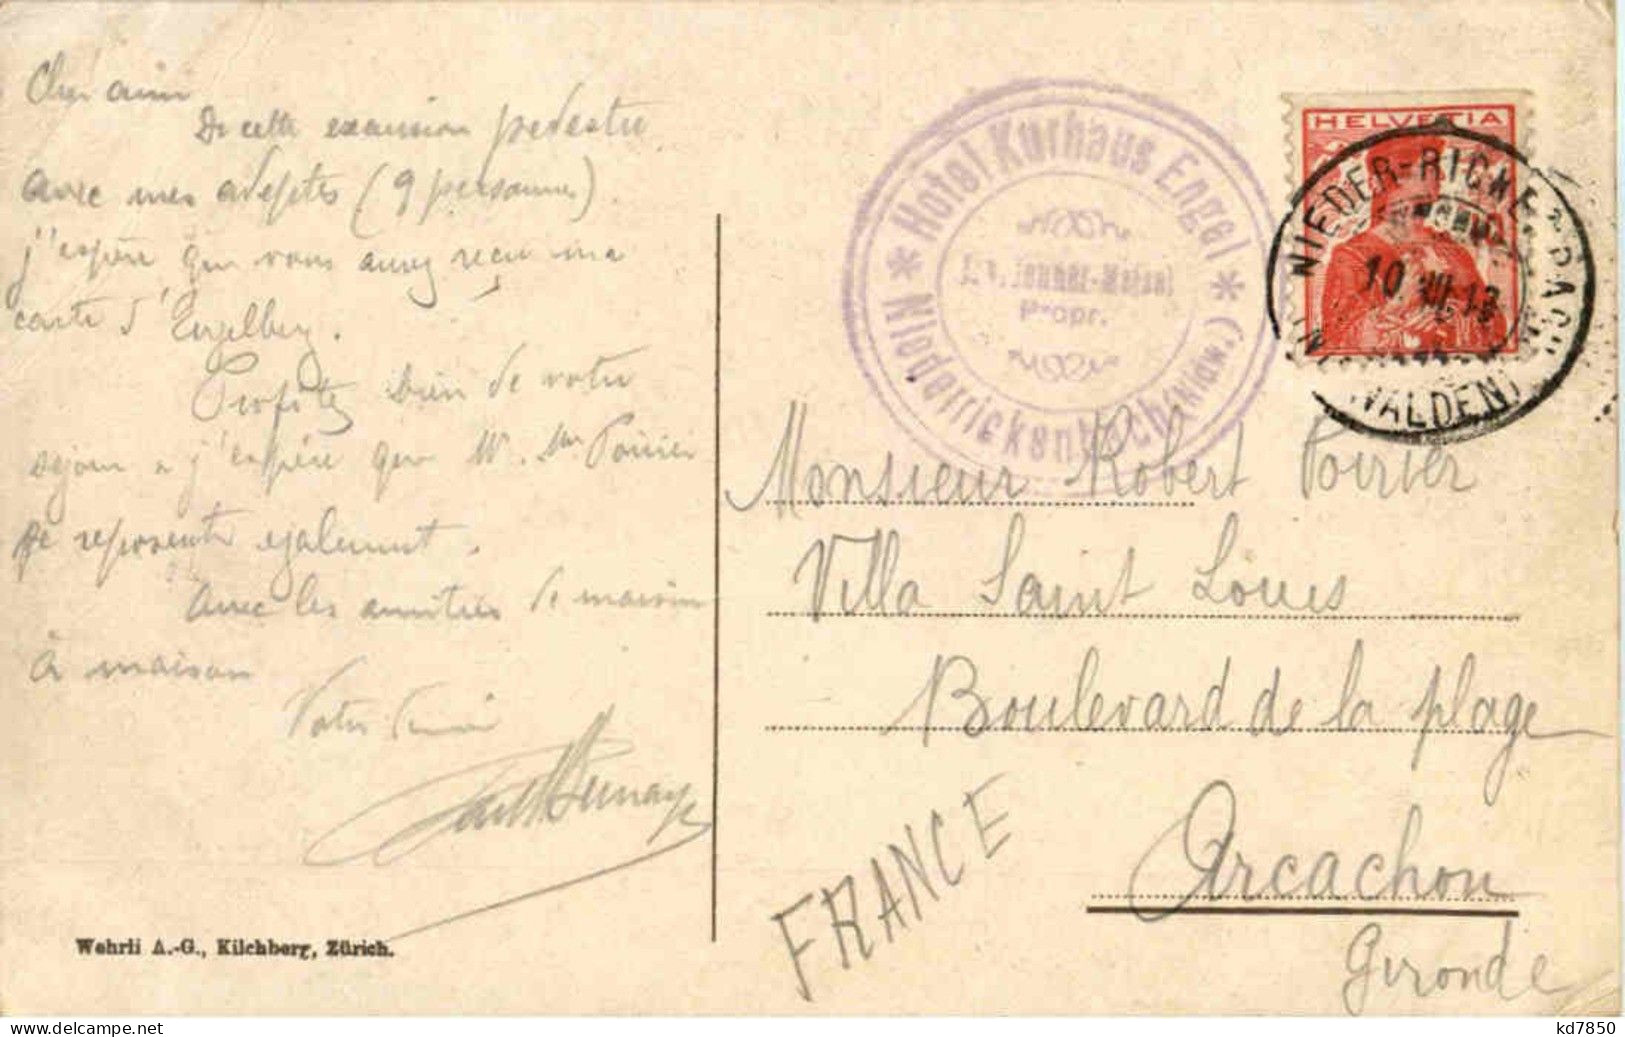 Cher ami
De cette excursion pedestre
avec mes adeptes (9 personnes).
j'espère que vous avez reçu ma
carte d'Engelberg.
Profitez bien de votre
séjour & j'espère que Mr. Mme Poirier
se reposent également.
Avec les amitiés de maison
à maison
Votre
Wehrli A.-G., Kilchberg, Zürich.
* Hotel Kurhaus Engel *
Propr.
Niederrickenbach (Nidw.)
HELVETIA
NIEDER-RICKENBACH
10. VII. 13
(NIDWALDEN)
Monsieur Robert Poirier
Villa Saint Louis
Boulevard de la plage
Arcachon
Gironde
FRANCE
kd7850